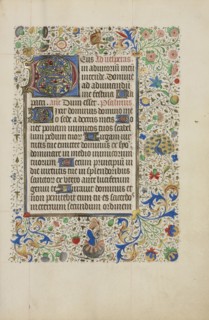 Deus
in adiutorium meum
intende Domine
ad adiuvandum
me festina
Dum esset
Dixit dominus domino
meo sede a dextris meis
donec ponam inimicos tuos scabel
lum pedum tuorum Virgam vir
tutis tue emittet dominus ex syon
dominare in medio inimicorum
tuorum Tecum principium in
die virtutis tue in splendoribus
sanctorum ex utero ante luciferum
genui te Iuravit dominus et
non penitebit eum tu es sacerdos
in eternum secundum ordinem